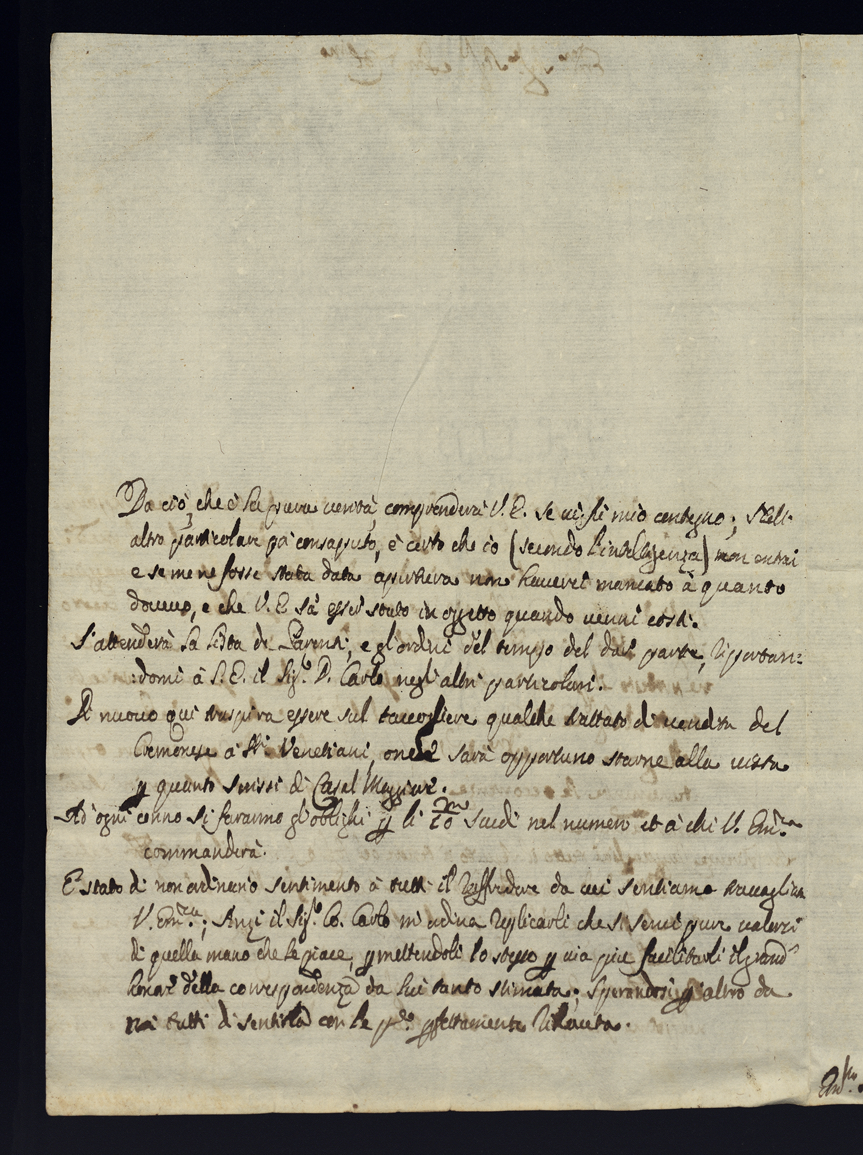 Da ciò, che è la pura verità, comprenderà V. E. se uissi mio contegno; Nell'
altro particolare già consaputo, è certo che iò (secondo l'intelligenza) non entrai
e se me ne fosse stata data apertura non hauerei mancato à quanto
doueuo, e che V. E. sà esser stato in oggetto quando uenni costì.
S'attenderà la lista de Parenti, e gl'ordini del tempo del dar parte, riportan=
:domi à S. E. il Sig.r D. Carlo negl'altri particolari.
Di nuouo qui traspira essere sul tauogliere qualche trattato di uendita del
Cremonese a SS.ri Venetiani, onde sarà opportuno starne alla uista
p quanto scrissi di Casal Maggiore.
Ad ogni cenno si faranno gl'oblighi p li 10m Scudi nel numero et à chi V. Em.za
commanderà.
E stato di non ordinario sentimento à tutti il Raffredore da cui sentiamo trauagliata
V. Em.za; Anzi il Sig.r Co. Carlo m'ordina replicarli che si serui pure ualersi
di quella mano che le piace, pmettendoli lo stesso p uia più facilitarli il grand'
honor della correspondenza da lui tanto stimata; sperandosi p altro da
noi tutti di sentirla con le p.te pfettamente rihauuta.